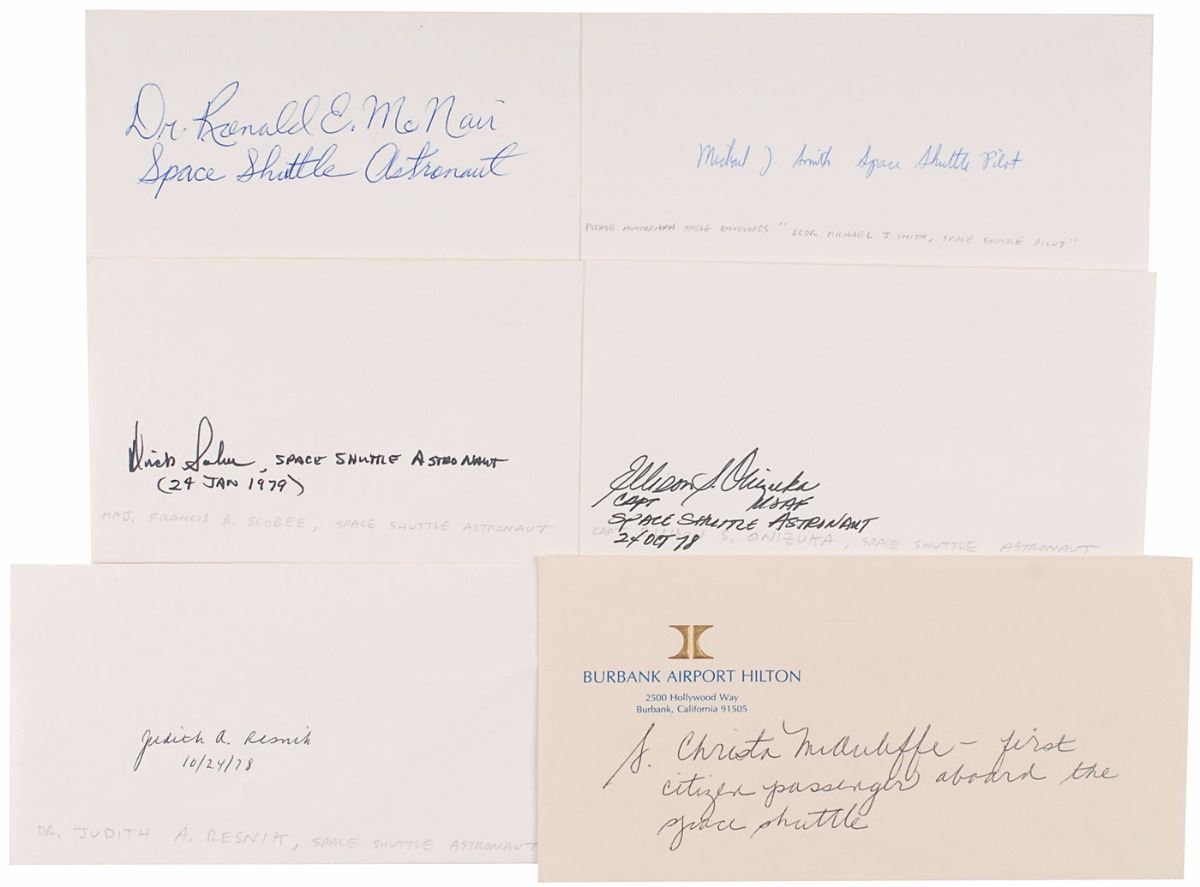 Dr. Ronald E. McNair
Space Shuttle Astronaut
Michael J. Smith Space Shuttle Pilot
PLEASE AUTOGRAPH THESE ENVELOPES "LCDR. MICHAEL J. SMITH, SPACE SHUTTLE PILOT"
Dick Scobee, SPACE SHUTTLE ASTRONAUT
(24 JAN 1979)
MAJ. FRANCIS R. SCOBEE, SPACE SHUTTLE ASTRONAUT
Ellison S. Onizuka
CAPT USAF
SPACE SHUTTLE ASTRONAUT
24 OCT 78
S. ONIZUKA, SPACE SHUTTLE ASTRONAUT
Judith A. Resnik
10/24/78
DR. JUDITH A. RESNIK, SPACE SHUTTLE ASTRONAUT
BURBANK AIRPORT HILTON
2500 Hollywood Way
Burbank, California 91505
S. Christa McAuliffe – first
citizen passenger aboard the
space shuttle